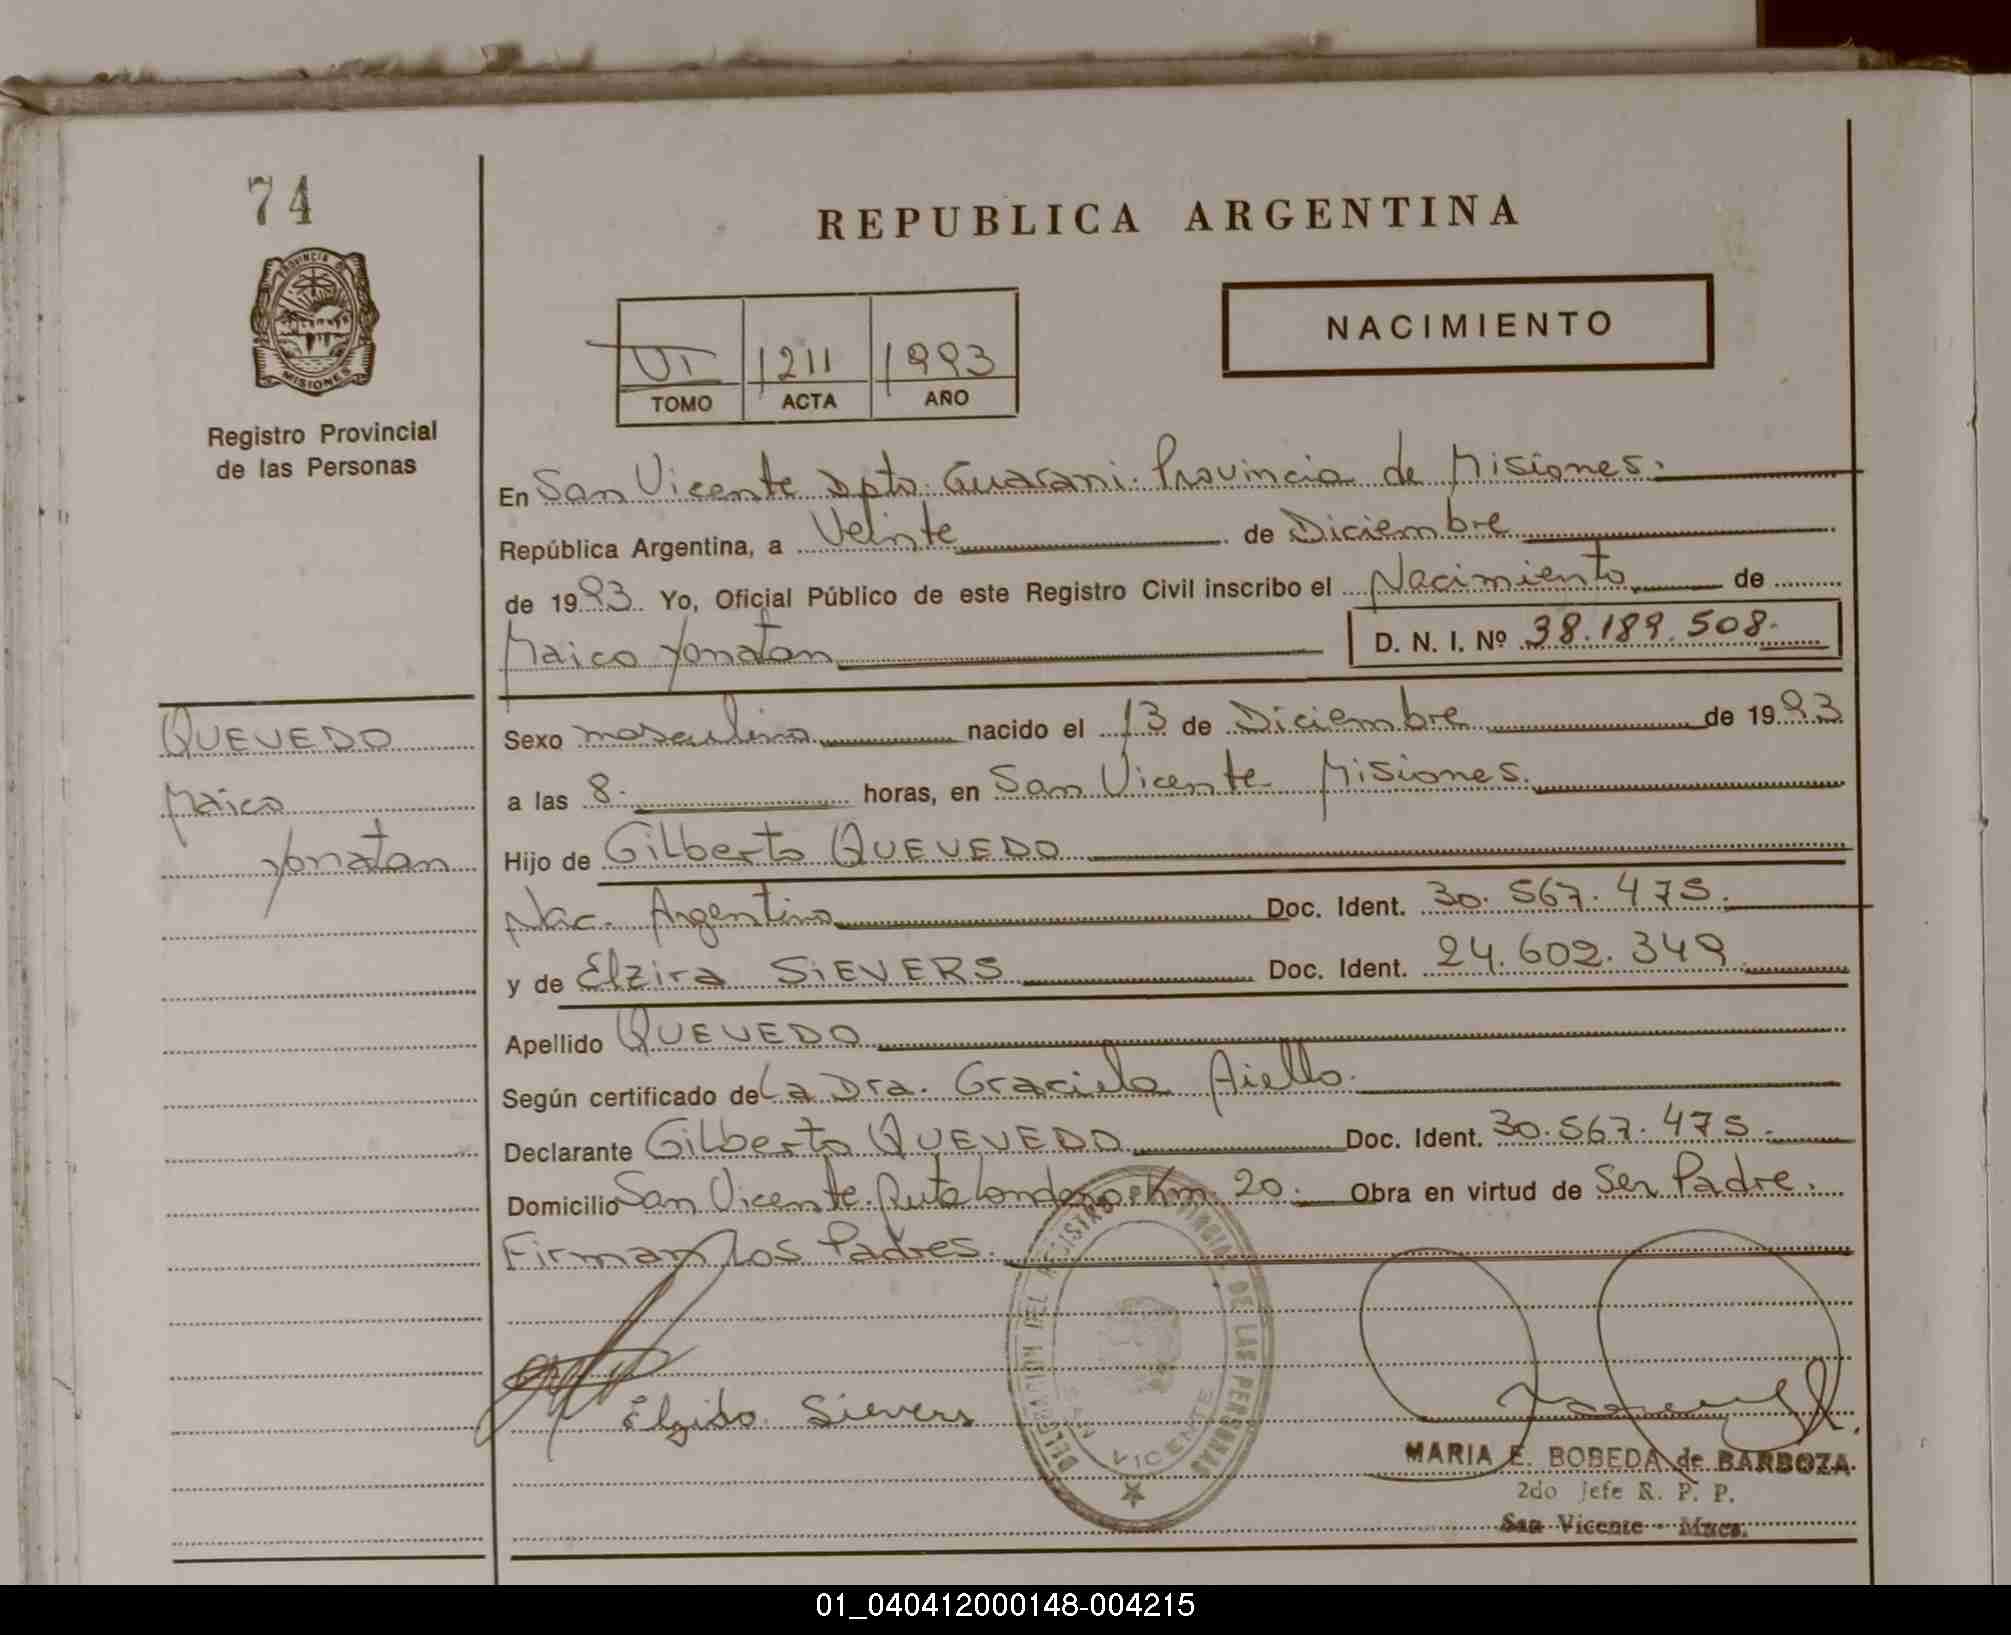 74
PROVINCIA DE
MISIONES
Registro Provincial
de las Personas
REPUBLICA ARGENTINA
NACIMIENTO
VI 1211 1993
TOMO ACTA AÑO
En San Vicente Dpto. Guarani. Provincia de Misiones.
República Argentina, a Veinte de Diciembre
de 1993. Yo, Oficial Público de este Registro Civil inscribo el Nacimiento de
Maico Yonatan D. N. I. Nº 38.189.508.
QUEVEDO
Maico
Yonatan
Sexo masculino nacido el 13 de Diciembre de 1993
a las 8. horas, en San Vicente Misiones.
Hijo de Gilberto QUEVEDO
Nac. Argentino Doc. Ident. 30.567.475.
y de Elzira SIEVERS Doc. Ident. 24.602.349
Apellido QUEVEDO
Según certificado de La Dra. Graciela Aiello.
Declarante Gilberto QUEVEDO Doc. Ident. 30.567.475.
Domicilio San Vicente. Ruta Km 20. Obra en virtud de Ser Padre.
Firman los Padres.
DELEGACION DEL REGISTRO PROVINCIAL DE LAS PERSONAS
SAN VICENTE
Sievers
MARIA E. BOBEDA de BARBOZA
2do Jefe R. P. P.
San Vicente - Mnes.
01_040412000148-004215